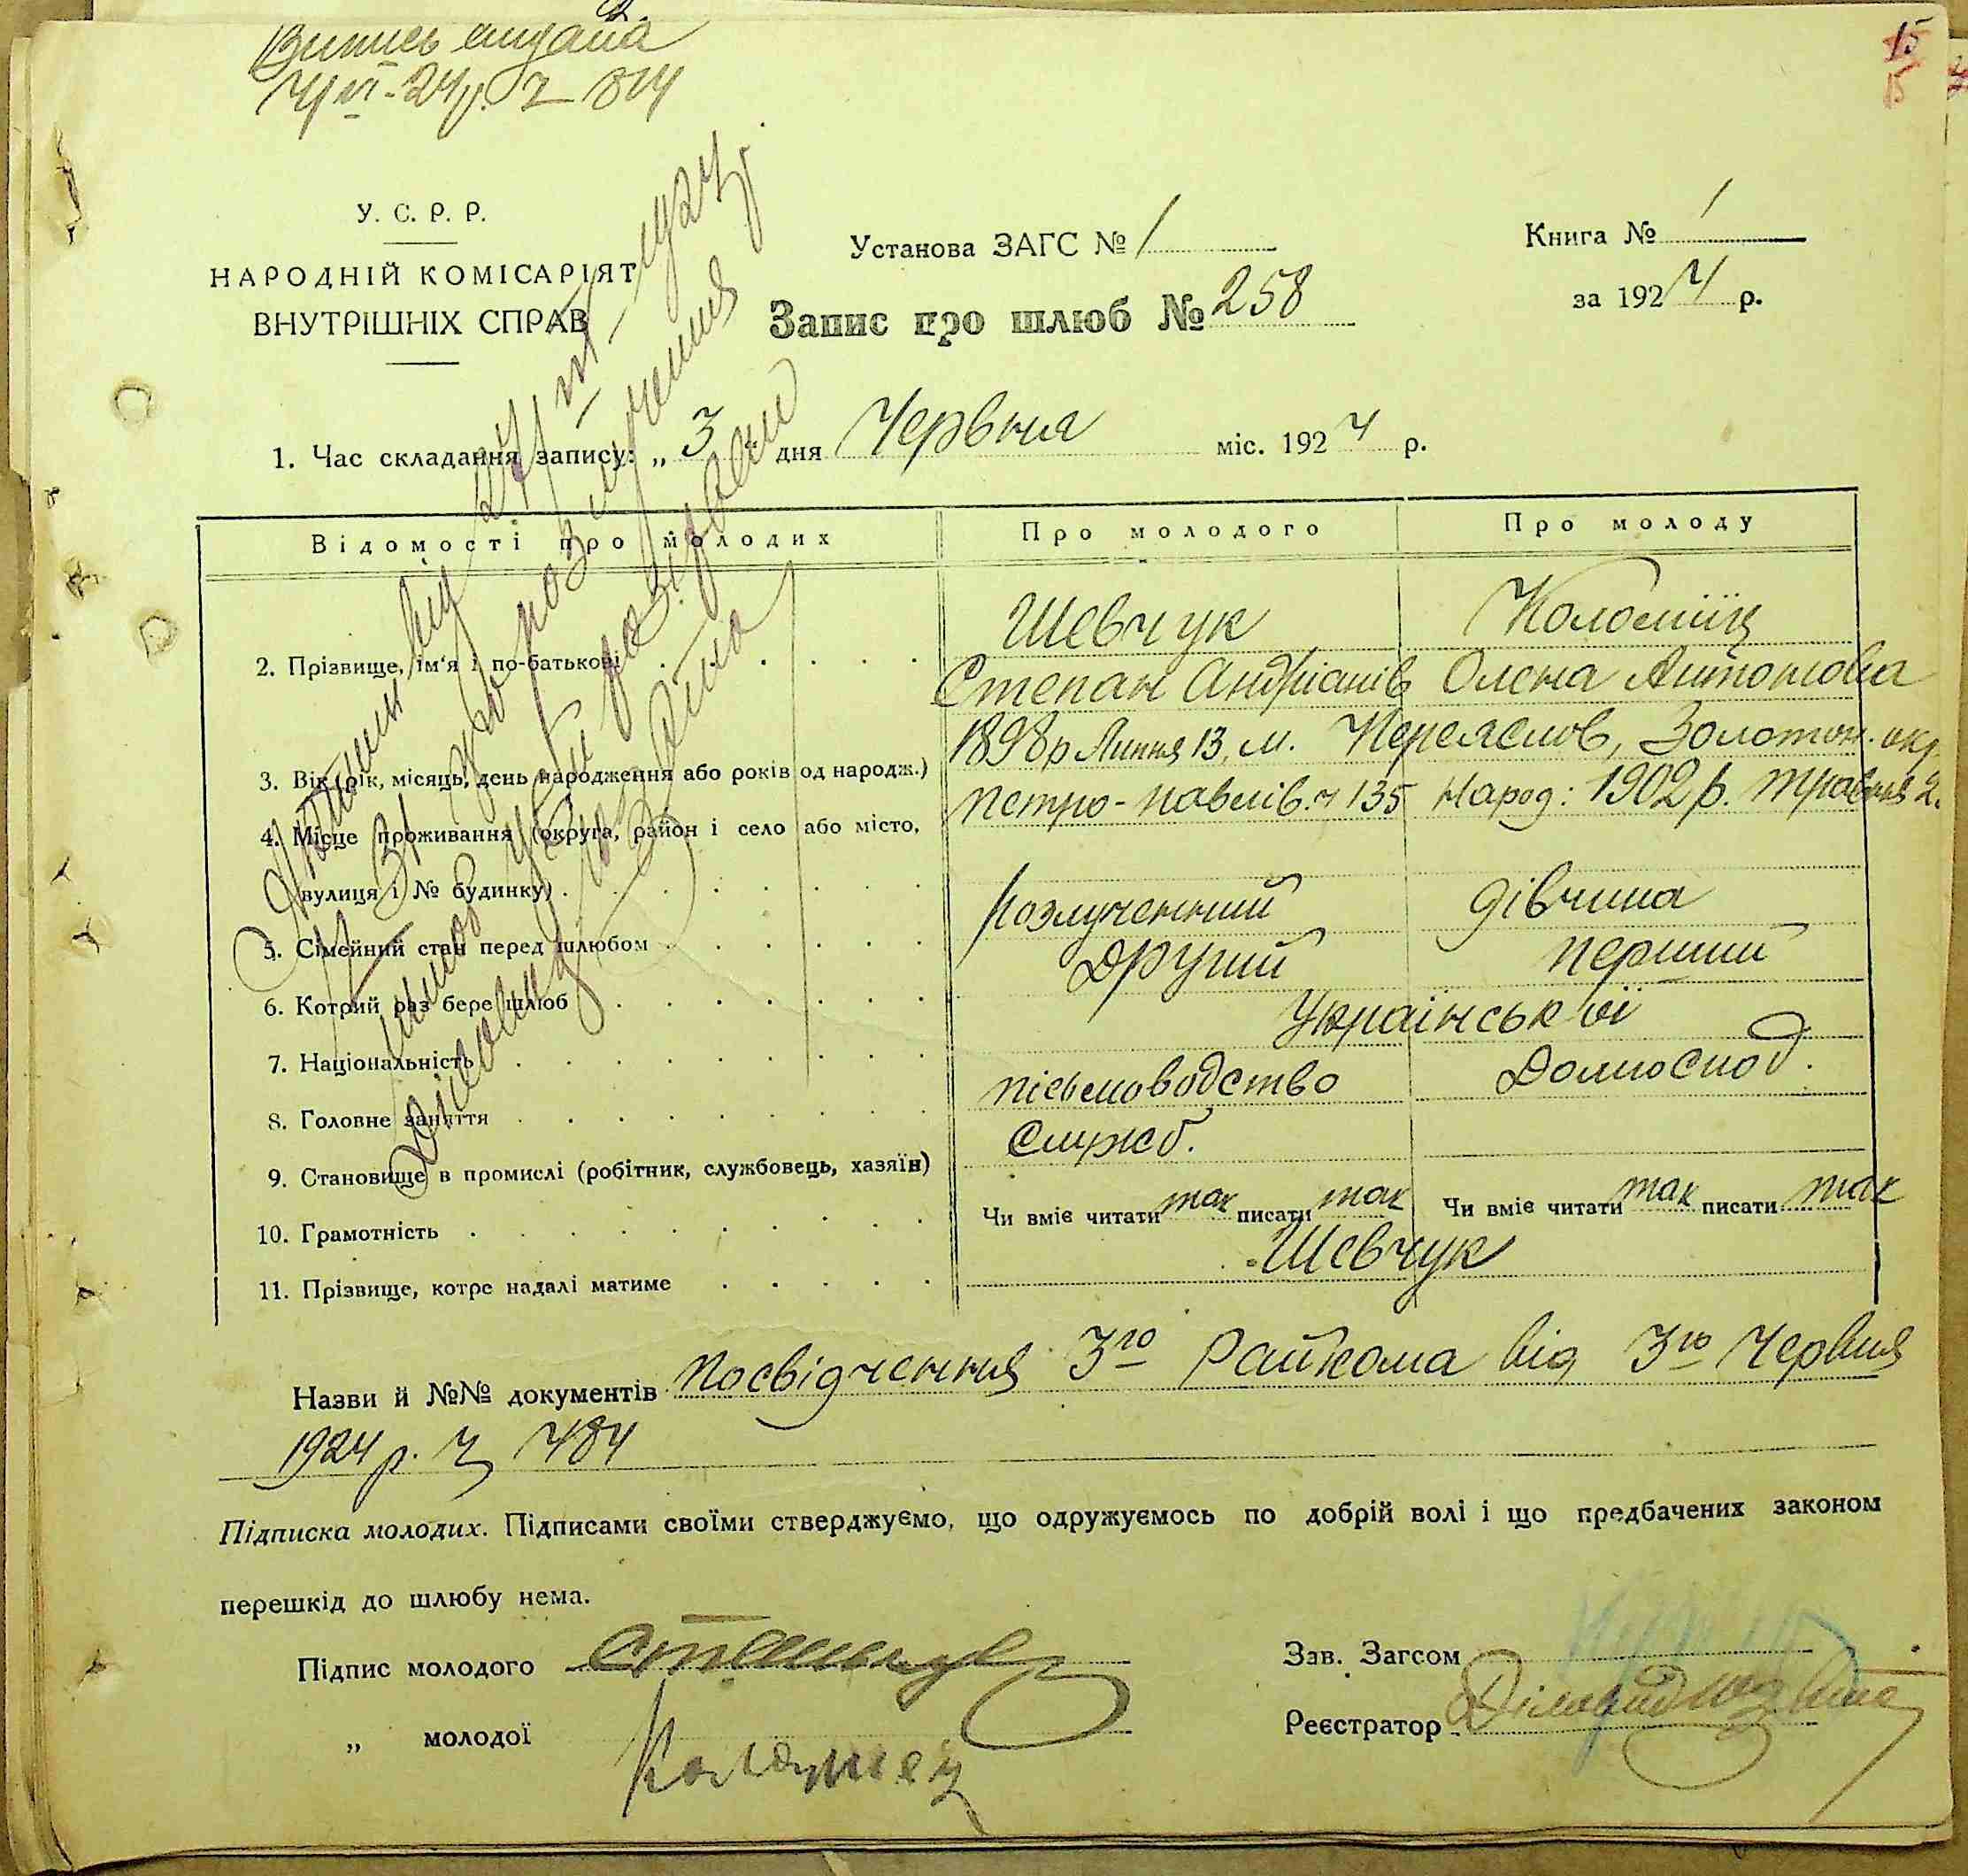 Випись видана
15
15
У. С. Р. Р.
НАРОДНІЙ КОМІСАРІЯТ
ВНУТРІШНІХ СПРАВ
Установа ЗАГС № 1
Книга № 1
за 1924 р.
Запис про шлюб № 258
1. Час складання запису: „ 3 " дня Червня міс. 1924 р.
Відомості про молодих
Про молодого
Про молоду
2. Прізвище, ім'я і по-батькові
Шевчук
Коломіїц
Степан Андріанів
Олена Антонова
3. Вік (рік, місяць, день народження або років од народж.)
1898 р Липня 13, м. Переяслов, Золотон. окр.
4. Місце проживання (округа, район і село або місто,
вулиця і № будинку)
Петро-Павлів. ч 135 Народ: 1902 р. травня 2.
5. Сімейний стан перед шлюбом
розлученний
дівчина
6. Котрий раз бере шлюб
Другий
перший
7. Національність
Української
8. Головне заняття
пісьмоводство
Домгоспод.
9. Становище в промислі (робітник, службовець, хазяїн)
Служб.
10. Грамотність
Чи вміє читати так писати так
Чи вміє читати так писати так
11. Прізвище, котре надалі матиме
Шевчук
Назви й №№ документів Посвідчення 3го Райкома від 3го Червня
1924 р. ч 484
Підписка молодих. Підписами своїми стверджуємо, що одружуємось по добрій волі і що предбачених законом
перешкід до шлюбу нема.
Підпис молодого
Зав. Загсом
„ молодої
Реєстратор